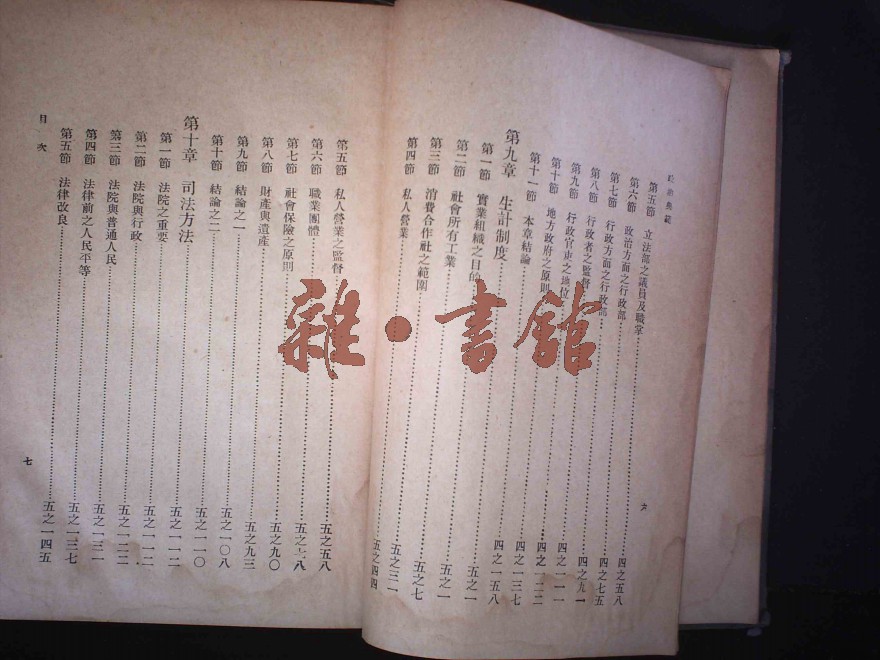 政治典範
第五節 立法部之議員及職掌……四之五八
第六節 政治方面之行政部……四之七五
第七節 行政方面之行政部……四之九一
第八節 行政者之監督……四之一一一
第九節 行政官吏之地位……四之一二二
第十節 地方政府之原則……四之一三七
第十一節 本章結論……四之一五八
第九章 生計制度……五之一
第一節 實業組織之目的……五之一
第二節 社會所有工業……五之七
第三節 消費合作社之範圍……五之三一
第四節 私人營業……五之四四
六
第五節 私人營業之監督……五之五八
第六節 職業團體……五之八
第七節 社會保險之原則……五之九〇
第八節 財產與遺產……五之九三
第九節 結論之一……五之一〇八
第十節 結論之二……五之一一〇
第十章 司法方法……五之一一二
第一節 法院之重要……五之一一二
第二節 法院與行政……五之一二二
第三節 法院與普通人民……五之一三一
第四節 法律前之人民平等……五之一三七
第五節 法律改良……五之一四五
目次
七
雜·書館